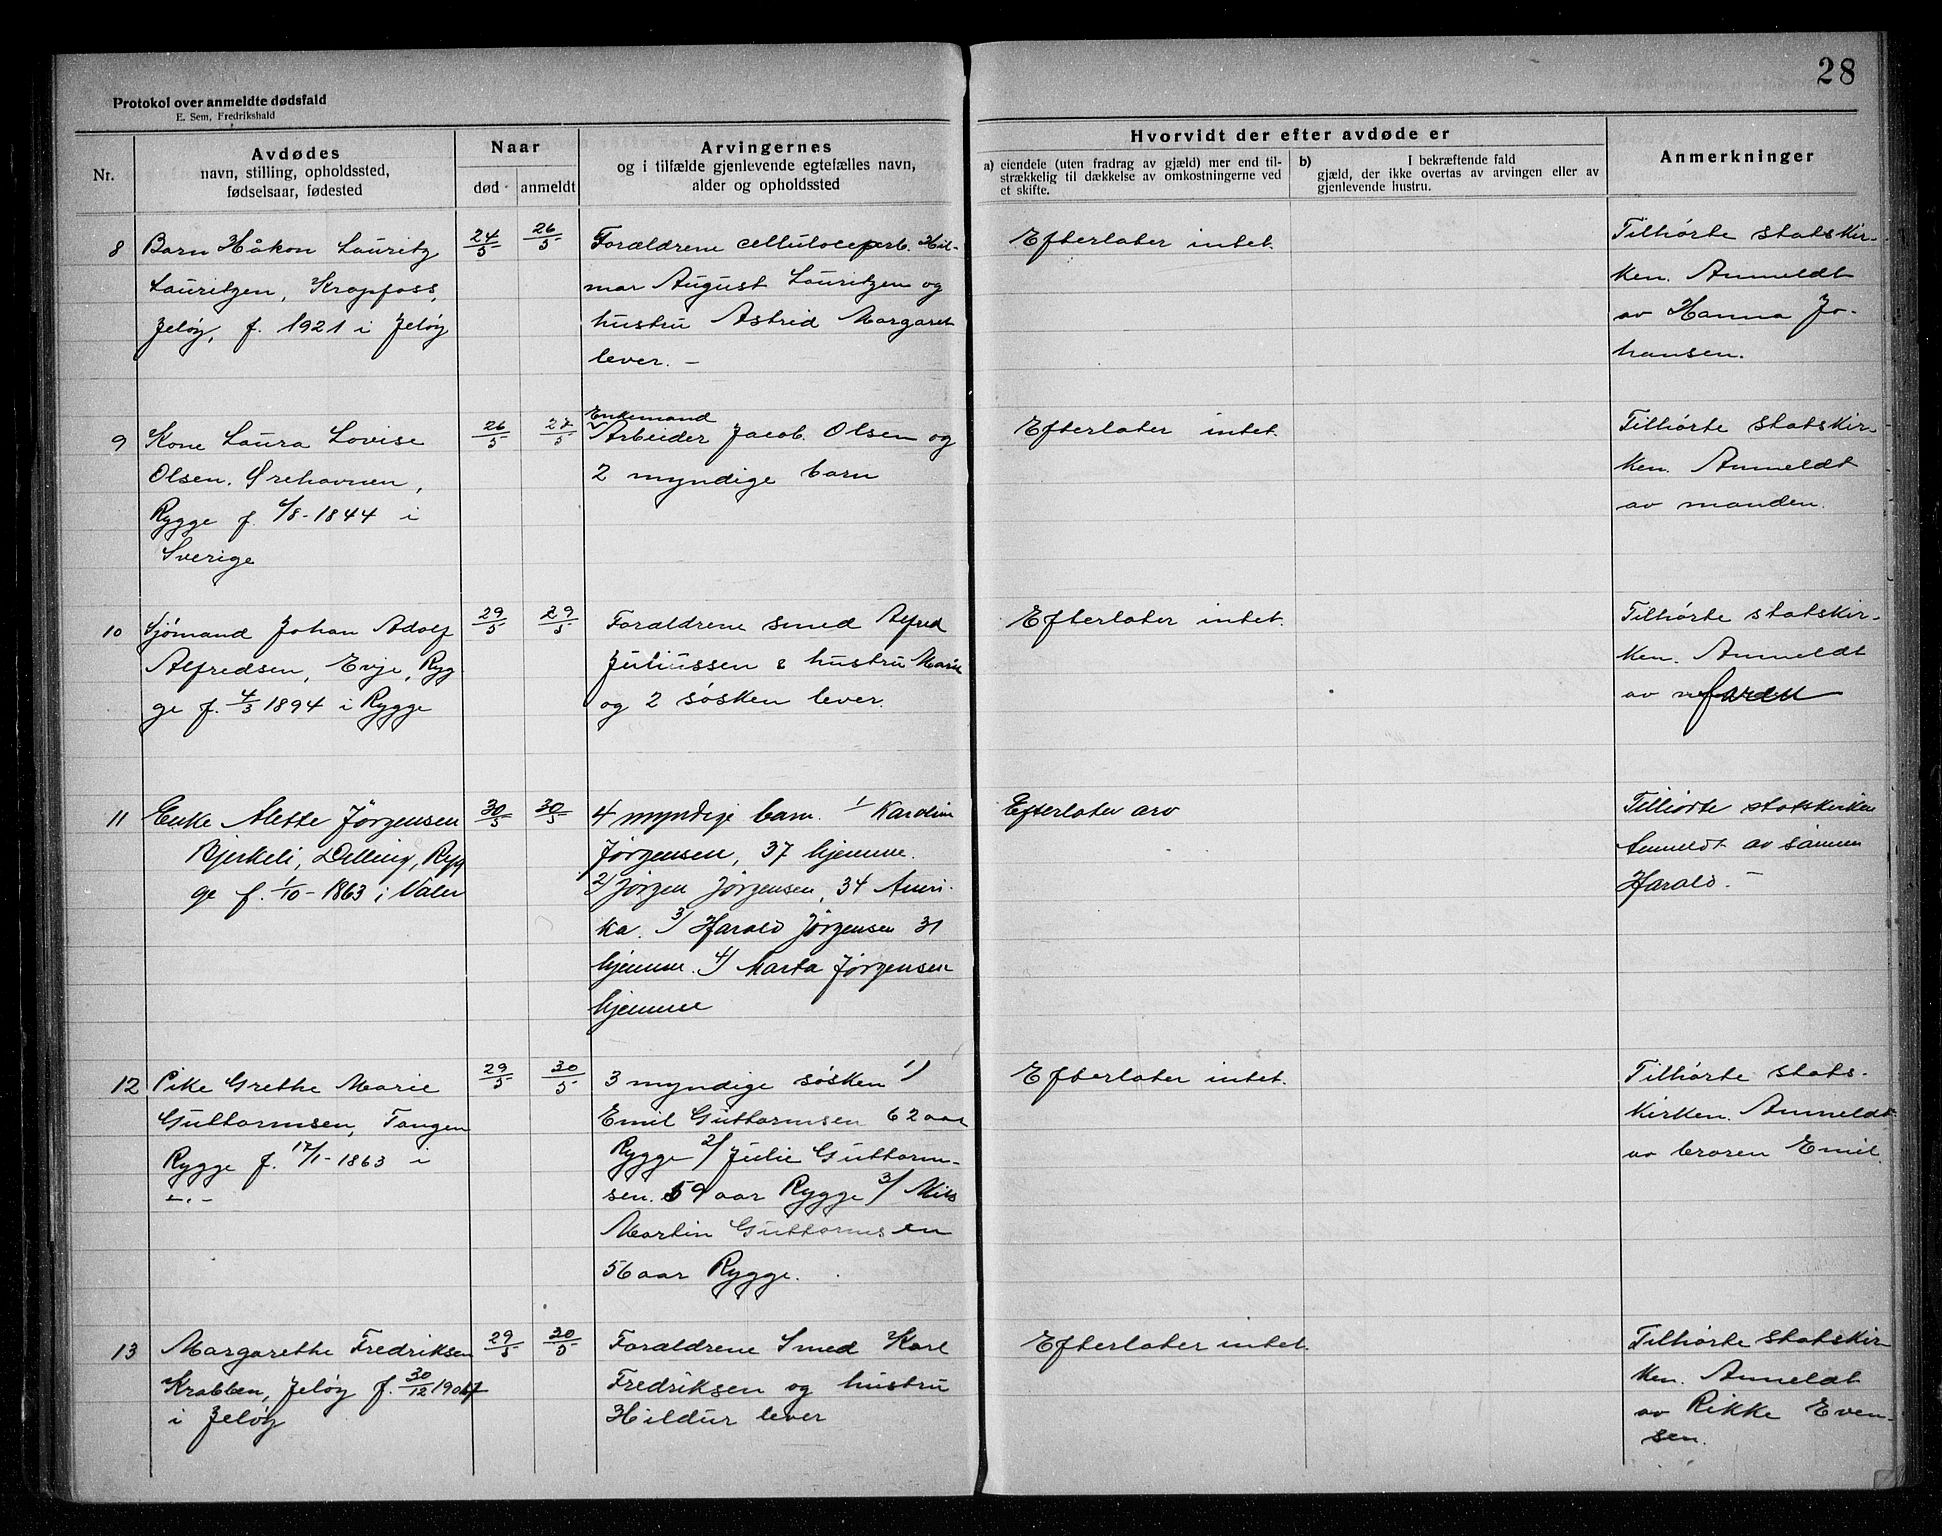 28
Protokol over anmeldte dødsfald
E. Sem, Fredrikshald
Nr.
Avdødes
navn, stilling, opholdssted,
fødselsaar, fødested
Naar
død
anmeldt
Arvingernes
og i tilfælde gjenlevende egtefælles navn,
alder og opholdssted
Hvorvidt der efter avdøde er
a) eiendele (uten fradrag av gjæld) mer end til-
strækkelig til dækkelse av omkostningerne ved
et skifte.
b) I bekræftende fald
gjæld, der ikke overtas av arvingen eller av
gjenlevende hustru.
Anmerkninger
8
Barn Håkon Lauritz
Lauritzen, Krapfoss,
Jeløy, f. 1921 i Jeløy
24/5
26/5
Forældrene cellulosearb. Hil-
mar August Lauritzen og
hustru Astrid Margaret
lever. –
Efterlater intet.
Tilhørte statskir-
ken. Anmeldt
av Hanna Jo-
hansen.
9
Kone Laura Lovise
Olsen. Ørehavnen,
Rygge f. 6/8-1844 i
Sverige
26/5
27/5
Enkemand
Arbeider Jacob Olsen og
2 myndige barn
Efterlater intet.
Tilhørte statskir-
ken. Anmeldt
av manden.
10
Sjømand Johan Adolf
Alfredsen, Evje, Ryg-
ge f. 4/3 1894 i Rygge
29/5
29/5
Forældrene smed Alfred
Juliussen & hustru Marie
og 2 søsken lever.
Efterlater intet.
Tilhørte statskir-
ken. Anmeldt
av faren
11
Enke Alette Jørgensen
Bjerkeli, Dilling, Ryg
ge f. 1/10-1863 i Våler
30/5
30/5
4 myndige barn. 1/ Karoline
Jørgensen, 37 hjemme.
2/ Jørgen Jørgensen, 34 Ameri-
ka. 3/ Harald Jørgensen 31
hjemme. 4/ Marta Jørgensen
hjemme
Efterlater arv
Tilhørte statskirken
Anmeldt av sønnen
Harald. –
12
Pike Grethe Marie
Guttormsen, Tangen
Rygge f. 17/1-1863 i
– . –
29/5
30/5
3 myndige søsken 1)
Emil Guttormsen 62 aar
Rygge 2/ Julie Guttorm-
sen. 59 aar Rygge 3/ Nils
Martin Guttormsen
56 aar Rygge.
Efterlater intet.
Tilhørte stats-
kirken. Anmeldt
av broren Emil.
13
Margarethe Fredriksen
Krabben, Jeløy f. 30/12 190
i Jeløy
29/5
30/5
Forældrene Smed Karl
Fredriksen og hustru
Hildur lever
Efterlater intet.
Tilhørte statskir
ken. Anmeldt
av Rikke Even-
sen.